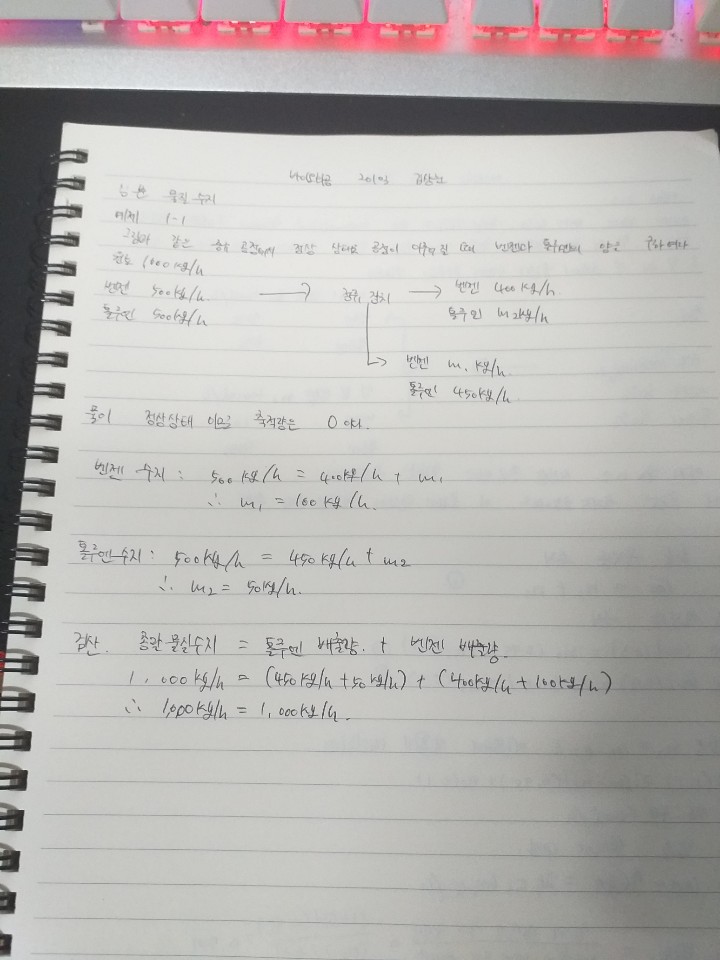 물질 수지
예제 1-1
그림과 같은 증류 공정에서 정상 상태로 공정이 이루어질 때 벤젠과 톨루엔의 양을 구하여라
원료 1,000kg/h
벤젠 500kg/h. → 장치 → 벤젠 400kg/h.
톨루엔 500kg/h 톨루엔 m2kg/h
벤젠 m1 kg/h.
톨루엔 450kg/h.
풀이 정상상태 이므로 축적량은 0 이다.
벤젠 수지 : 500kg/h = 400kg/h + m1
∴ m1 = 100kg/h.
톨루엔 수지 : 500kg/h = 450kg/h + m2
∴ m2 = 50kg/h.
검산. 총괄 물질수지 = 톨루엔 배출량. + 벤젠 배출량.
1,000kg/h = (450kg/h + 50kg/h) + (400kg/h + 100kg/h)
∴ 1,000kg/h = 1,000kg/h.